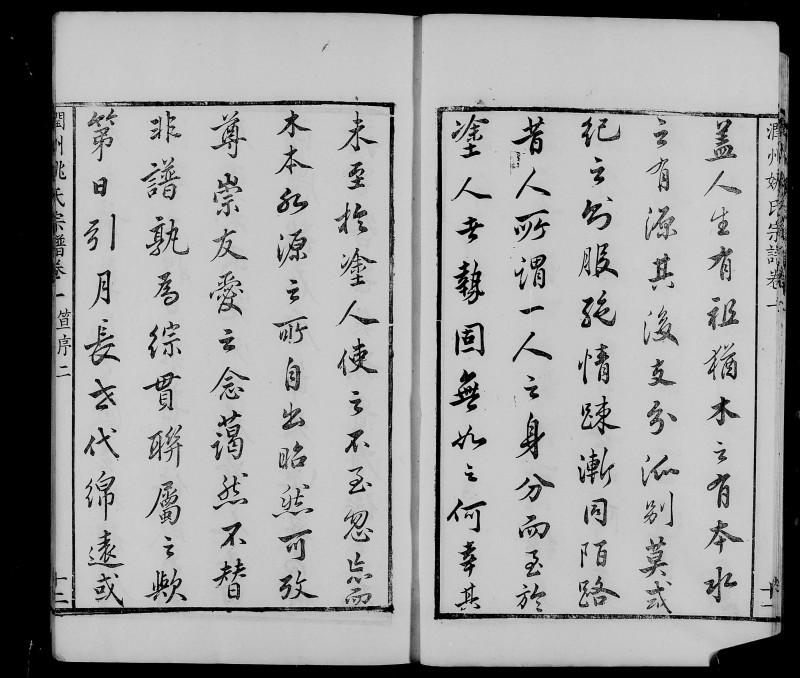 潤州姚氏宗譜卷一
十一
蓋人生有祖猶木之有本水
之有源其後支分派別莫或
紀之則服絕情踈漸同陌路
昔人所謂一人之身分而至於
塗人者勢固無如之何幸其
未至於塗人使之不至忽忘而
木本水源之所自出昭然可攷
尊崇友愛之念藹然不替
非譜孰為綜貫聯屬之歟
第日引月長世代綿遠或
潤州姚氏宗譜卷一 序二
十二